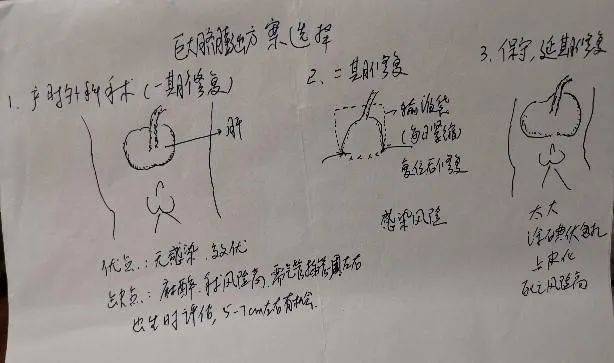 巨大脐膨出方案选择
1. 产时外科手术(一期修复)
肝
优点:无感染、效优
缺点:麻醉、手术风险高、需气管插管周左右
出生时评估,5-7cm左右有机会.
2. 二期修复
输液袋
(每日紧缩)
复位后修复
感染风险
3. 保守,延期修复
太大
涂碘伏
上皮化
死亡风险高